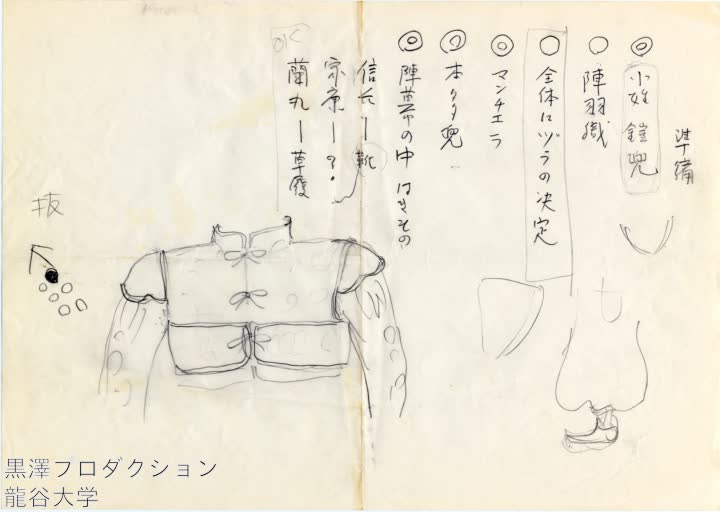 準備
◎ 小姓 鎧 兜
○ 陣羽織
○ 全体にヅラの決定
◎ マンチエラ
◎ 本タタ兜
◎ 陣幕の中 はきもの
信長ー靴
家康ー?
蘭丸ー草履
OK
黒澤プロダクション
龍谷大学